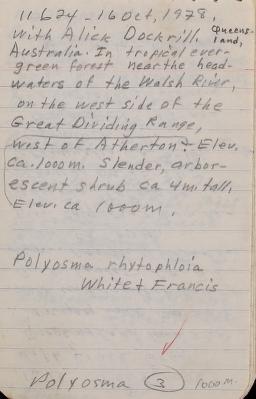 11624 - 16 Oct, 1978,
with Alick Dockrill, Queens-
land,
Australia. In tropical ever-
green forest near the head-
waters of the Walsh River,
on the west side of the
Great Dividing Range,
west of Atherton. Elev.
ca. 1000m. Slender, arbor-
escent shrub ca 4m. tall,
Elev. ca 1000m.
Polyosma rhytophloia
White & Francis
Polyosma 3 1000 m.